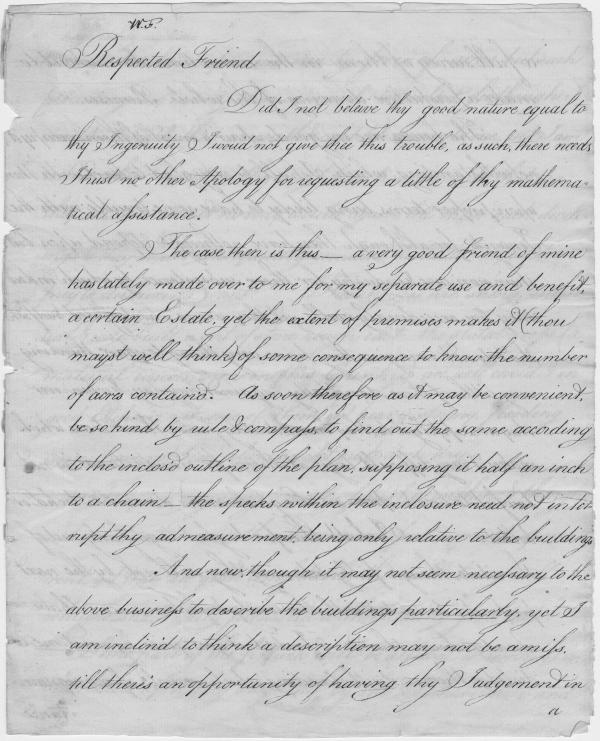 W.F.
Respected Friend
Did I not beleive thy good nature equal to
thy Ingenuity I wou'd not give thee this trouble, as such, there needs
I trust no other Apology for requesting a little of thy mathema-
tical assistance.
The case then is this — a very good friend of mine
has lately made over to me for my separate use and benefit,
a certain Estate, yet the extent of premises makes it (thou
mayst well think) of some consequence to know the number
of acres containd. As soon therefore as it may be convenient,
be so kind by rule & compass, to find out the same according
to the inclos'd outline of the plan, supposing it half an inch
to a chain — the specks within the inclosure need not inter-
rupt thy admeasurement, being only relative to the buildings
And now, though it may not seem necessary to the
above business to describe the buildings particularly, yet I
am inclin'd to think a description may not be amiss,
till there's an opportunity of having thy Judgement in
a